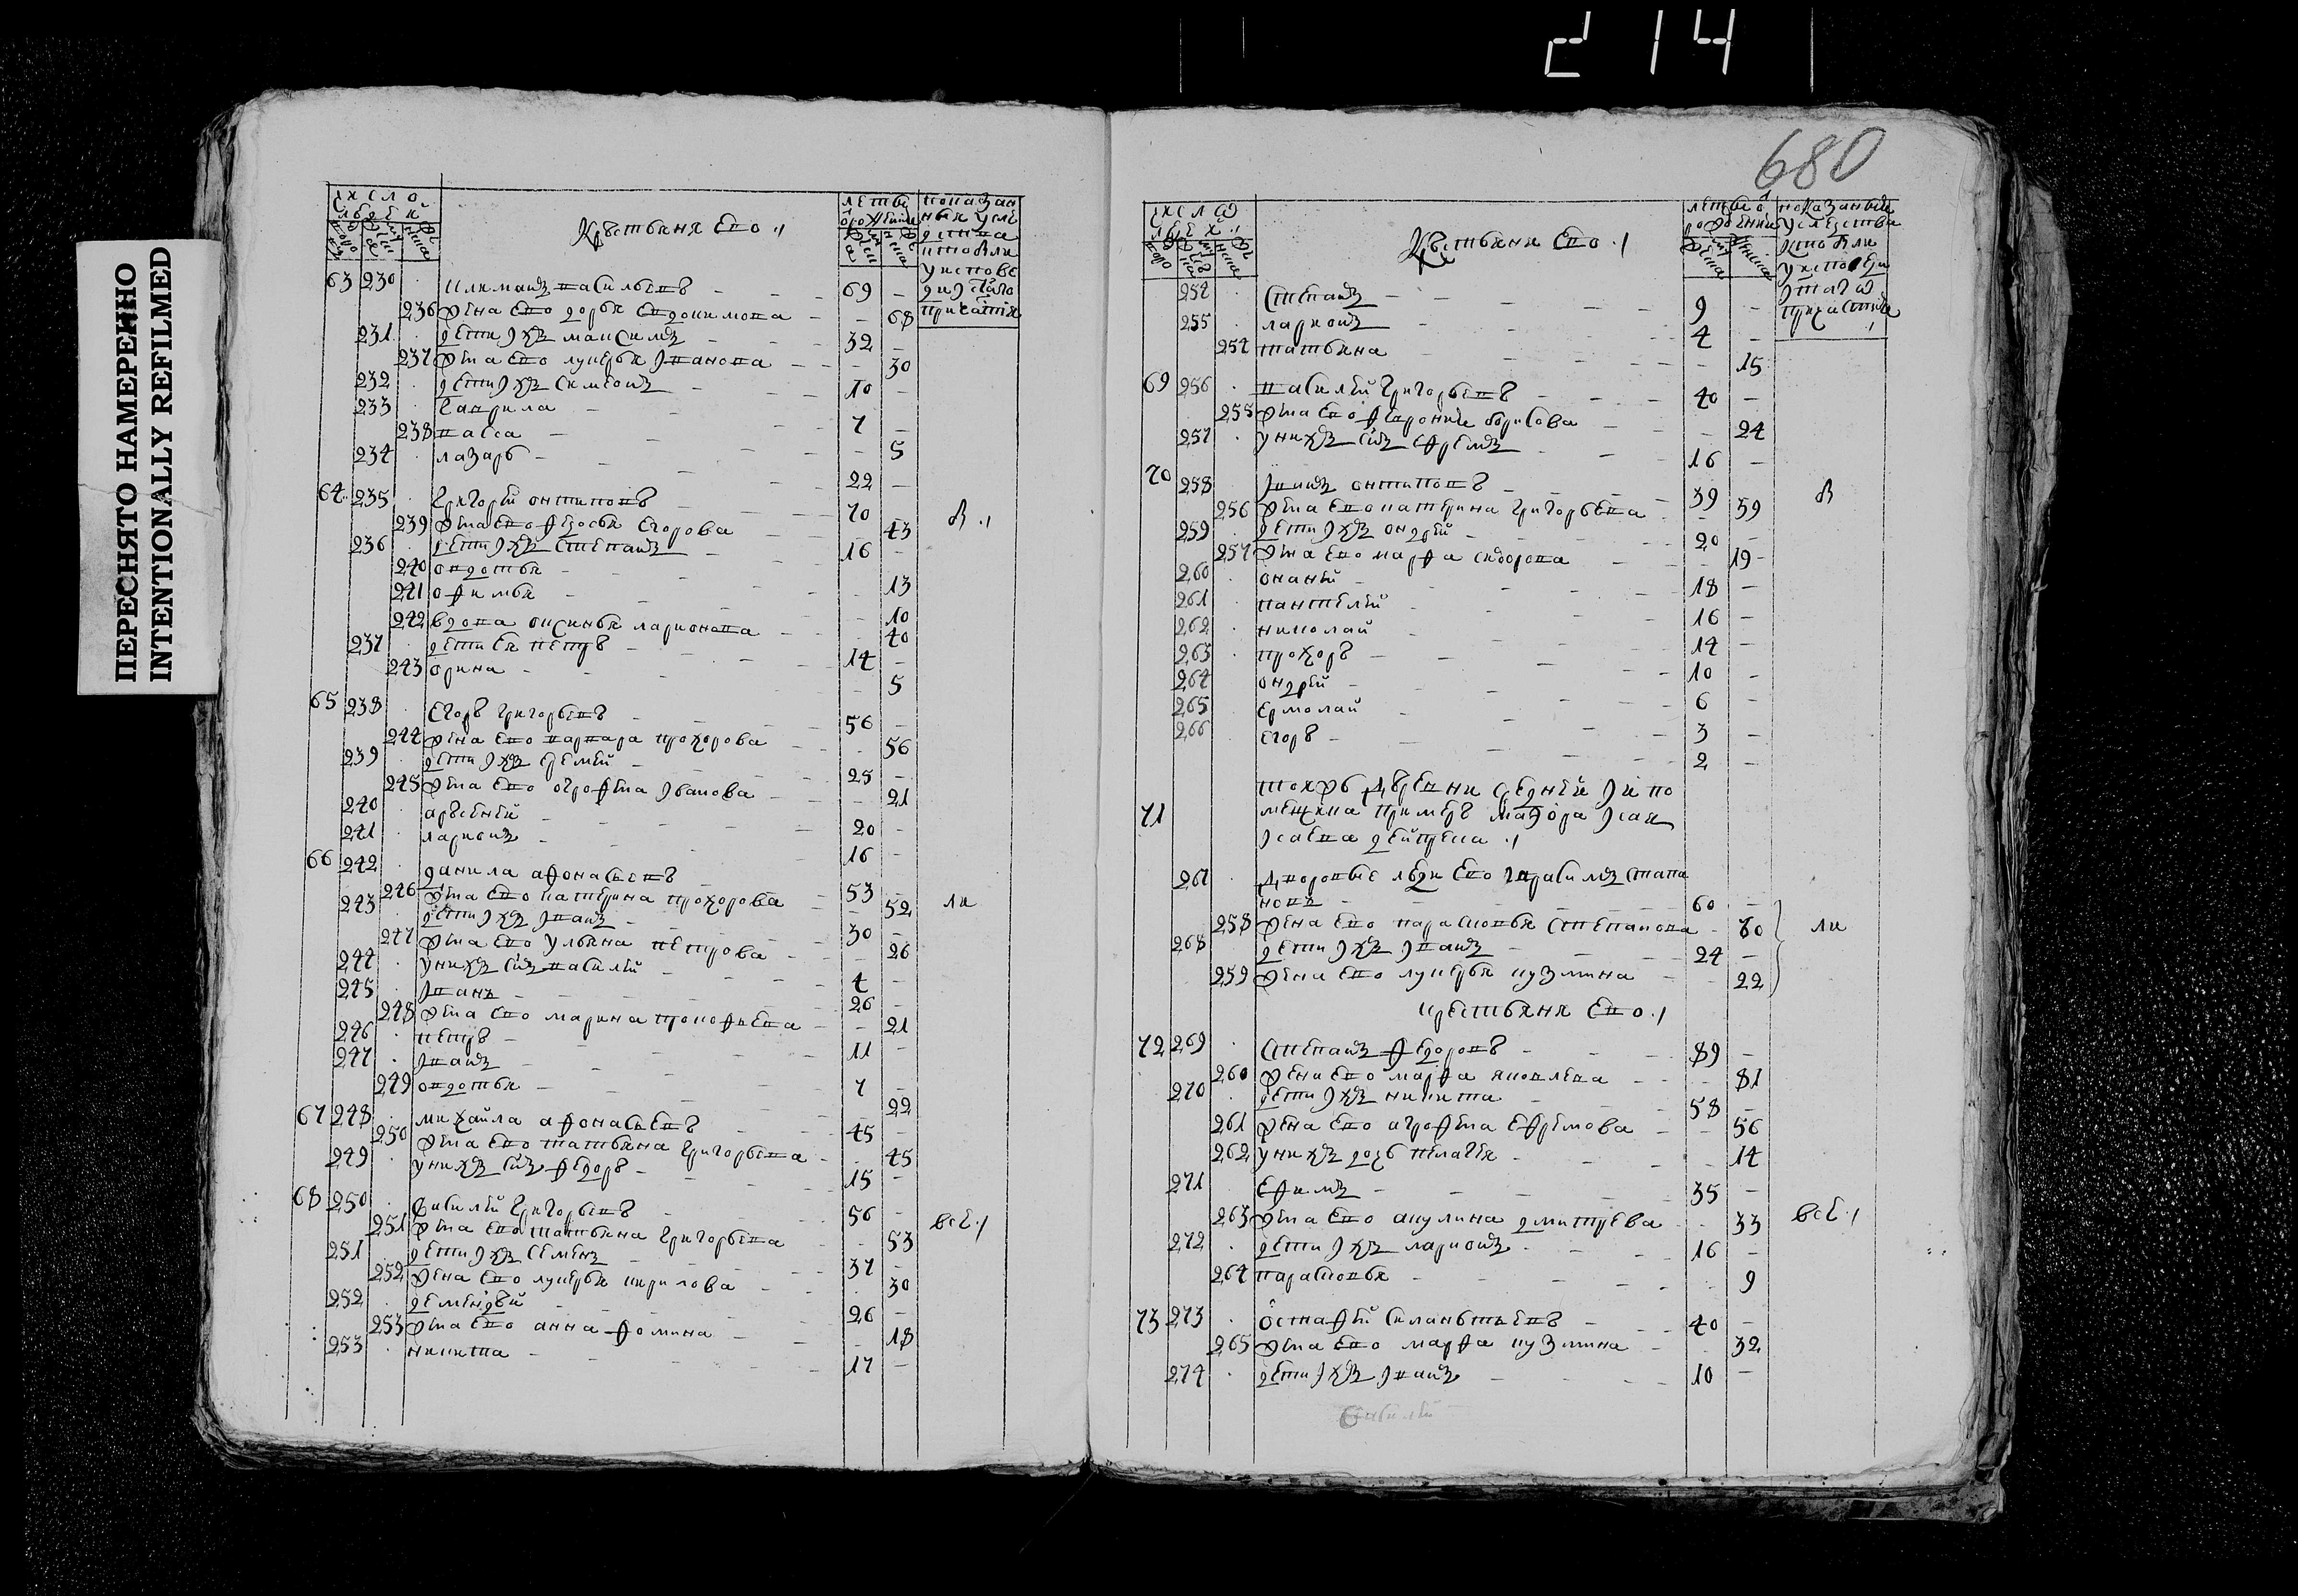 214
680
ПЕРЕСНЯТО НАМЕРЕННО
INTENTIONALLY REFILMED
число людей
дворовъ
крестьяня ево
63 230 69
236 жена ево дарья 68
231 дети ихъ максимъ 32
237 жена ево лукерья иванова 30
232 дети ихъ симеонъ 10
233 гаврила 7
238 васса 5
234 лазарь 22
64 235 григорей онтиповъ 70
239 жена ево федосья егорова 43
236 дети ихъ степанъ 16
240 овдотья 13
241 офимья 10
242 вдова оксинья ларионова 40
237 дети ея петръ 14
243 орина 5
65 238 егоръ григорьевъ 56
244 жена ево варвара прохорова 56
239 дети ихъ еремей 25
245 жена ево огрофена иванова 21
240 арьсеней 20
241 ларионъ 16
66 242 данила афонасьевъ 53
246 жена ево катерина прохорова 52
243 дети ихъ иванъ 30
247 жена ево ульяна петрова 26
244 у нихъ сынъ василей 4
245 иванъ 26
248 жена ево марина прокофьева 21
246 петръ 11
247 иванъ 7
249 овдотья 22
67 248 михайла афонасьевъ 45
250 жена ево татьяна григорьева 45
249 у нихъ сынъ федоръ 15
68 250 василей григорьевъ 56
251 жена ево татьяна григорьева 53
251 дети ихъ семенъ 37
252 жена ево лукерья кирилова 30
252 дементей 26
253 жена ево анна фомина 18
253 никита 17
всѣ
число людей
крестьяня ево
254 степанъ 9
255 ларионъ 4
254 татьяна 15
69 256 василей григорьевъ 40
255 жена ево борисова 24
257 у нихъ сынъ ефремъ 16
70 258 иванъ онтиповъ 39
256 жена ево катерина григорьева 39
259 дети ихъ ондрей 20
257 жена ево марфа сидорова 19
260 ананей 18
261 пантелей 16
262 николай 14
263 прохоръ 10
264 ондрей 6
265 ермолай 3
266 егоръ 2
71 тоежъ деревни средней
помещика маиора исая
исаева
267 дворовые люди ево 60
258 жена ево парасковья степанова 60
268 дети ихъ иванъ 24
259 жена ево лукерья кузмина 22
крестьяня ево
72 269 степанъ федоровъ 89
260 жена ево марфа яковлева 81
270 дети ихъ никита 58
261 жена ево агрофена ефремова 56
262 у нихъ дочь пелагея 14
271 ефимъ 35
263 жена ево акулина дмитрева 33
272 дети ихъ ларионъ 16
264 парасковья 9
73 273 остафей 40
265 жена ево марфа кузмина 32
274 дети ихъ иванъ 10
всѣ
василей